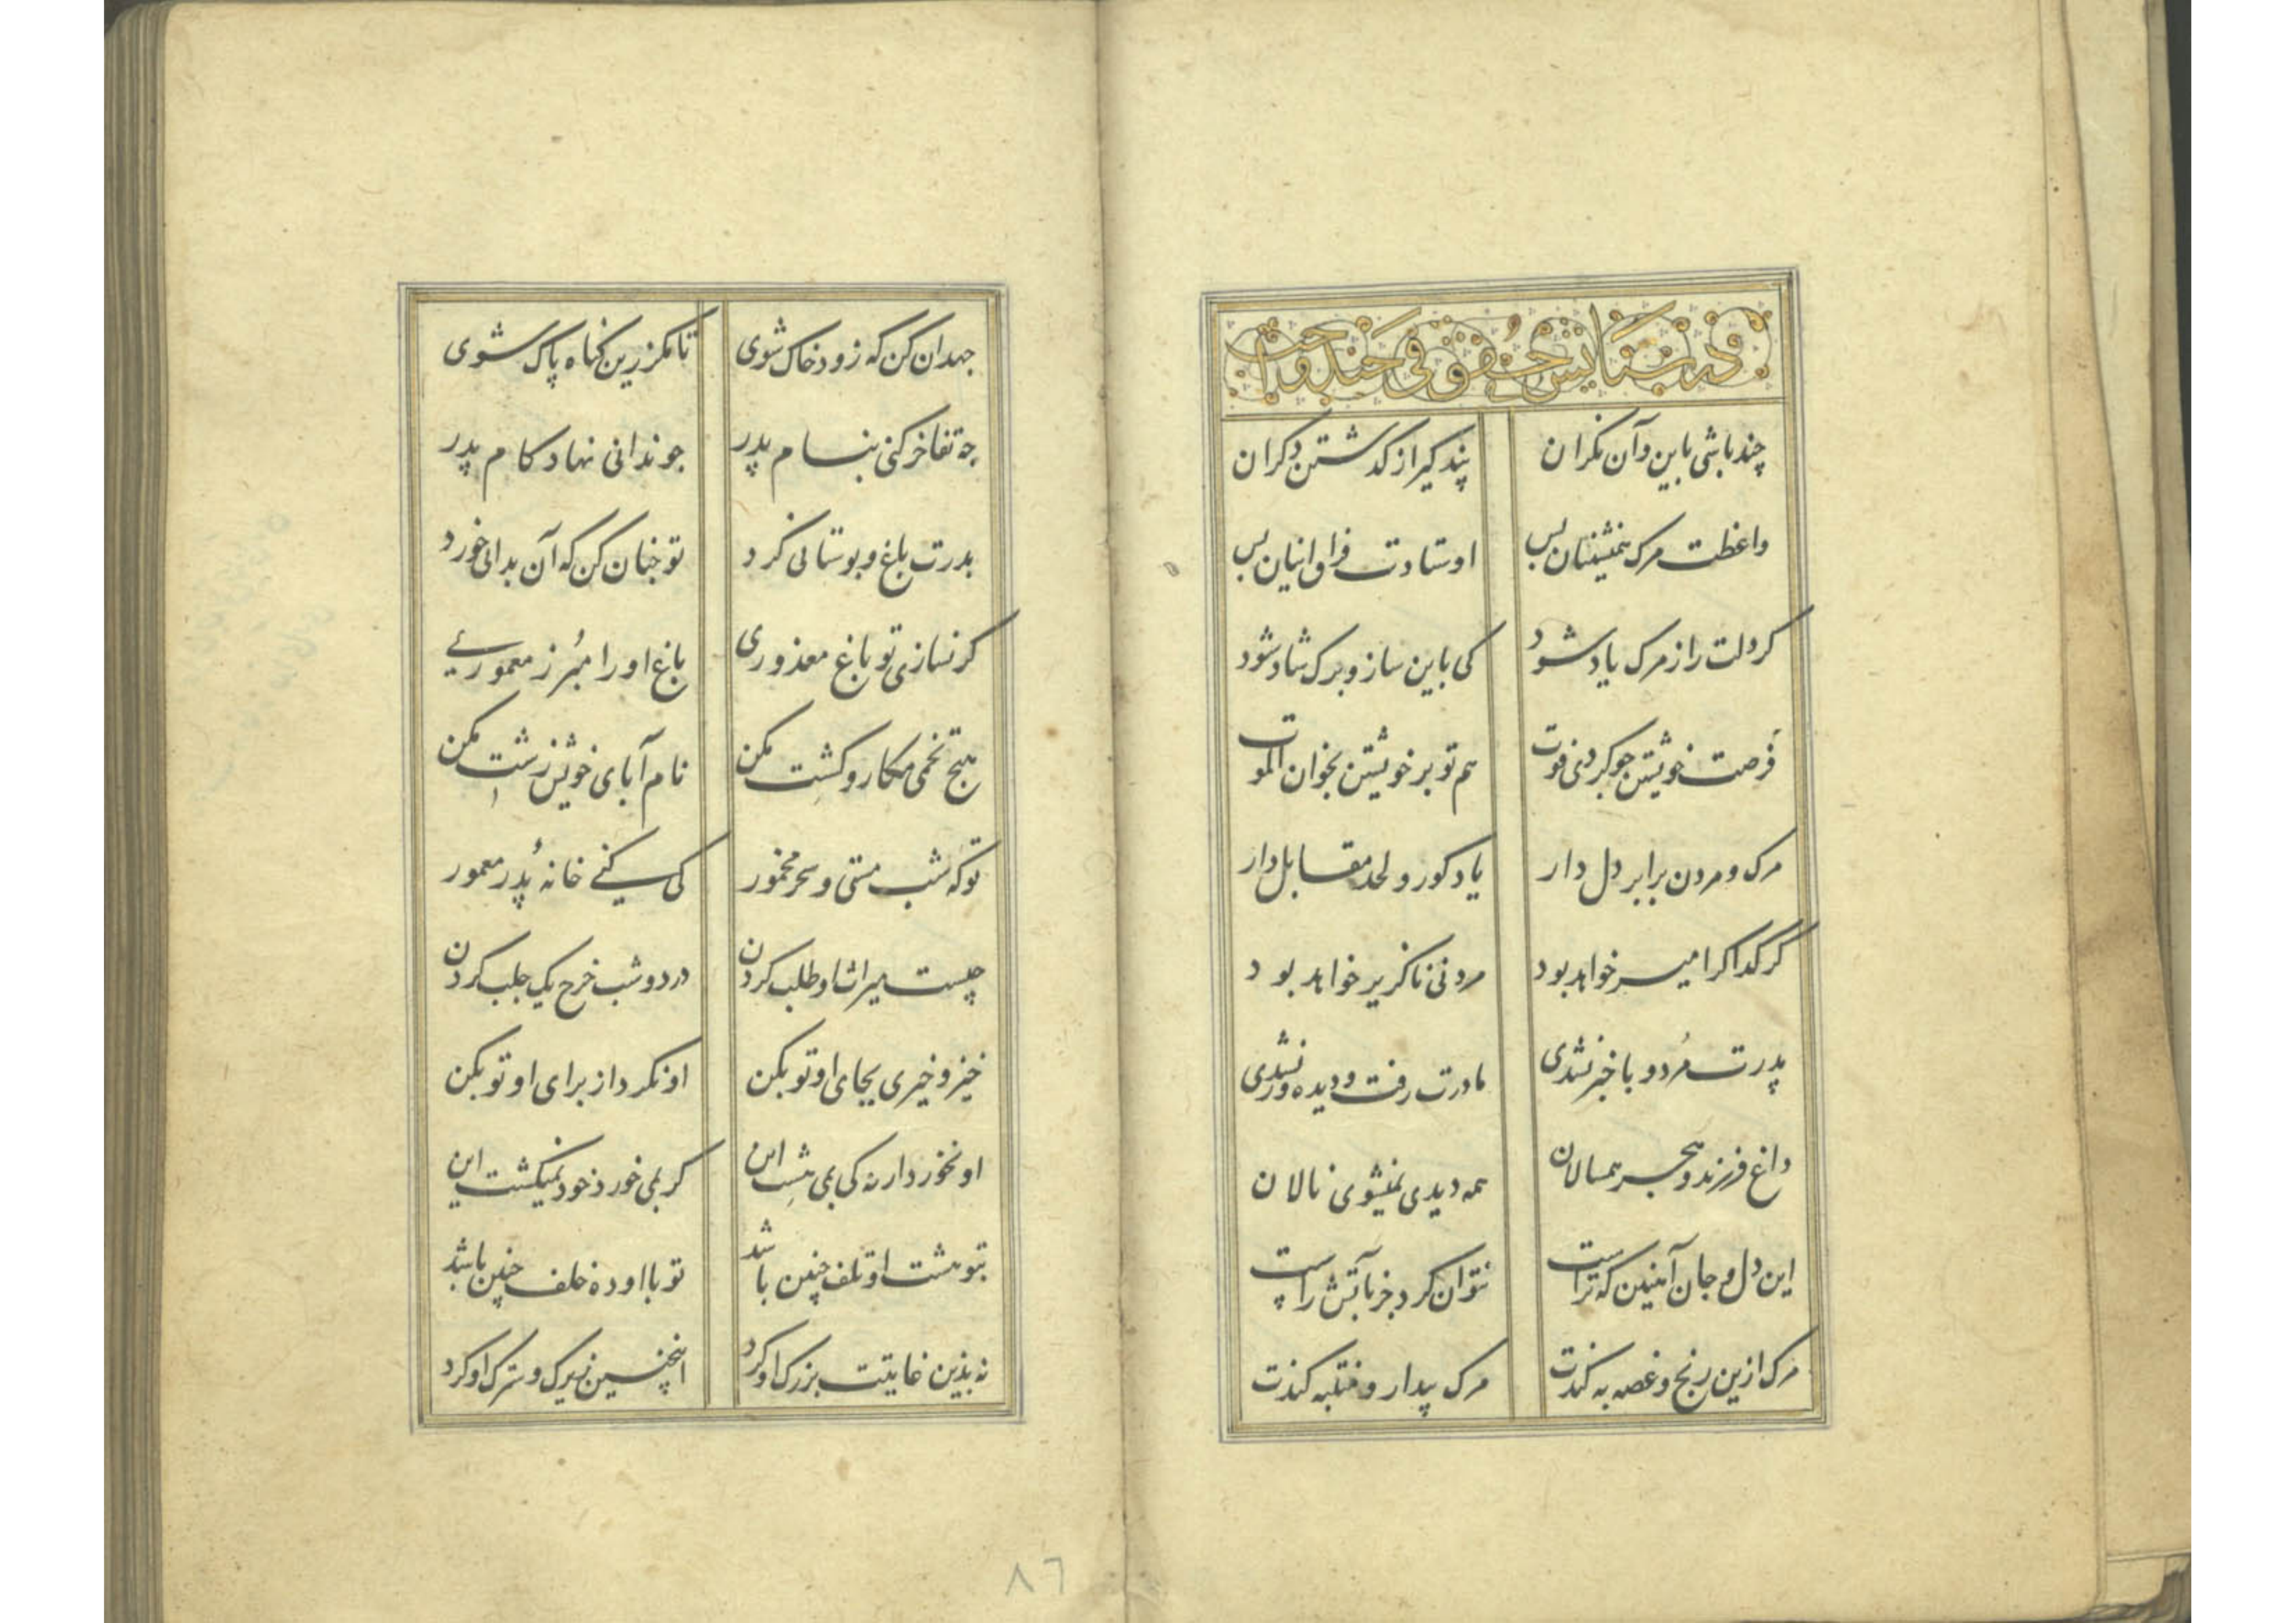 چند باشی باین وآن نکران پند کیر از کدشتن دکران
واعظت مرک همنشینان بس اوستادت فراق اینان بس
کر دلت را ز مرک یاد شود کی باین ساز و برک شاد شود
فرصت خویشتن جو کردی فوت هم تو بر خویشتن بخوان الموت
مرک و مردن برابر دل دار یاد کور و لحد مقابل دار
کر کدا کر امیر خواهد بود مردنی ناکزیر خواهد بود
پدرت مُرد و با خبر نشدی مادرت رفت و دیده ور نشدی
داغ فرزند و هجر همسالان همه دیدی نمیشوی نالان
این دل و جان آهنین که تراست نتوان کرد جز بآتش راست
مرک ازین رنج و غصه به کندت مرک بیدار و منتبه کندت
جهد ان کن که زود خاک شوی تا مکر زین کناه پاک شوی
چه تفاخر کنی بنام پدر جو ندانی نهاد کام پدر
بدرت باغ و بوستانی کرد تو جنان کن که آن بدانی خورد
کر نسازی تو باغ معذوری باغ او را مبُر ز معموری
هیج تخمی مکار و کشت مکن نام آبای خویش زشت مکن
تو که شب مستی و سحر مخمور کی کنی خانهٔ پدر معمور
چیست میراث او طلب کردن در دو شب خرج یک جلب کردن
خیز و خیری بجای او تو بکن او نکرد از برای او تو بکن
او نخورد ار نه کی بمی هشت این کر بمی خورد خود نمیکشت این
بتو هشت او تلف چنین باشد تو بااو ده خلف چنین باشد
نه بذین غایتت بزرک او کرد اینچنین زیرک و سترک او کرد
۸٦